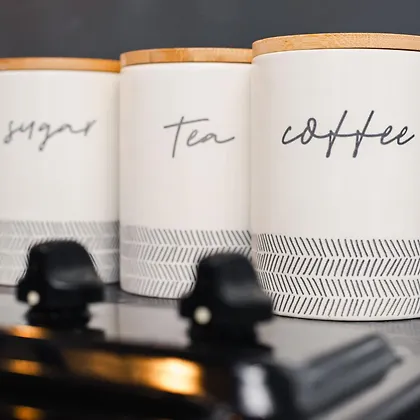 sugar
Tea
coffee